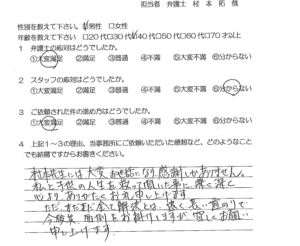 担当者 弁護士 村本拓哉
性別を教えて下さい。☑男性 □女性
年齢を教えて下さい □20代□30代☑40代□50代□60代□70才以上
1 弁護士の応対はどうでしたか。
①大変満足 ②満足 ③普通 ④不満 ⑤大変不満 ⑥分からない
2 スタッフの応対はどうでしたか。
①大変満足 ②満足 ③普通 ④不満 ⑤大変不満 ⑥分からない
3 ご依頼された件の進め方はどうでしたか。
①大変満足 ②満足 ③普通 ④不満 ⑤大変不満 ⑥分からない
4 上記1~3の理由、当事務所にご依頼いただいた感想など、どのようなこと
でも結構ですからお書きください。
村本先生には大変お世話になり、感謝しかありません。
私と子供の人生を救って頂いた事に、深く深く
心より、ありがたくお礼申し上げます
ただ、まだまだ全て解決とは、遠く長い道のりで
今後共、面倒をお掛けしますが、宜しくお願い
申し上げます